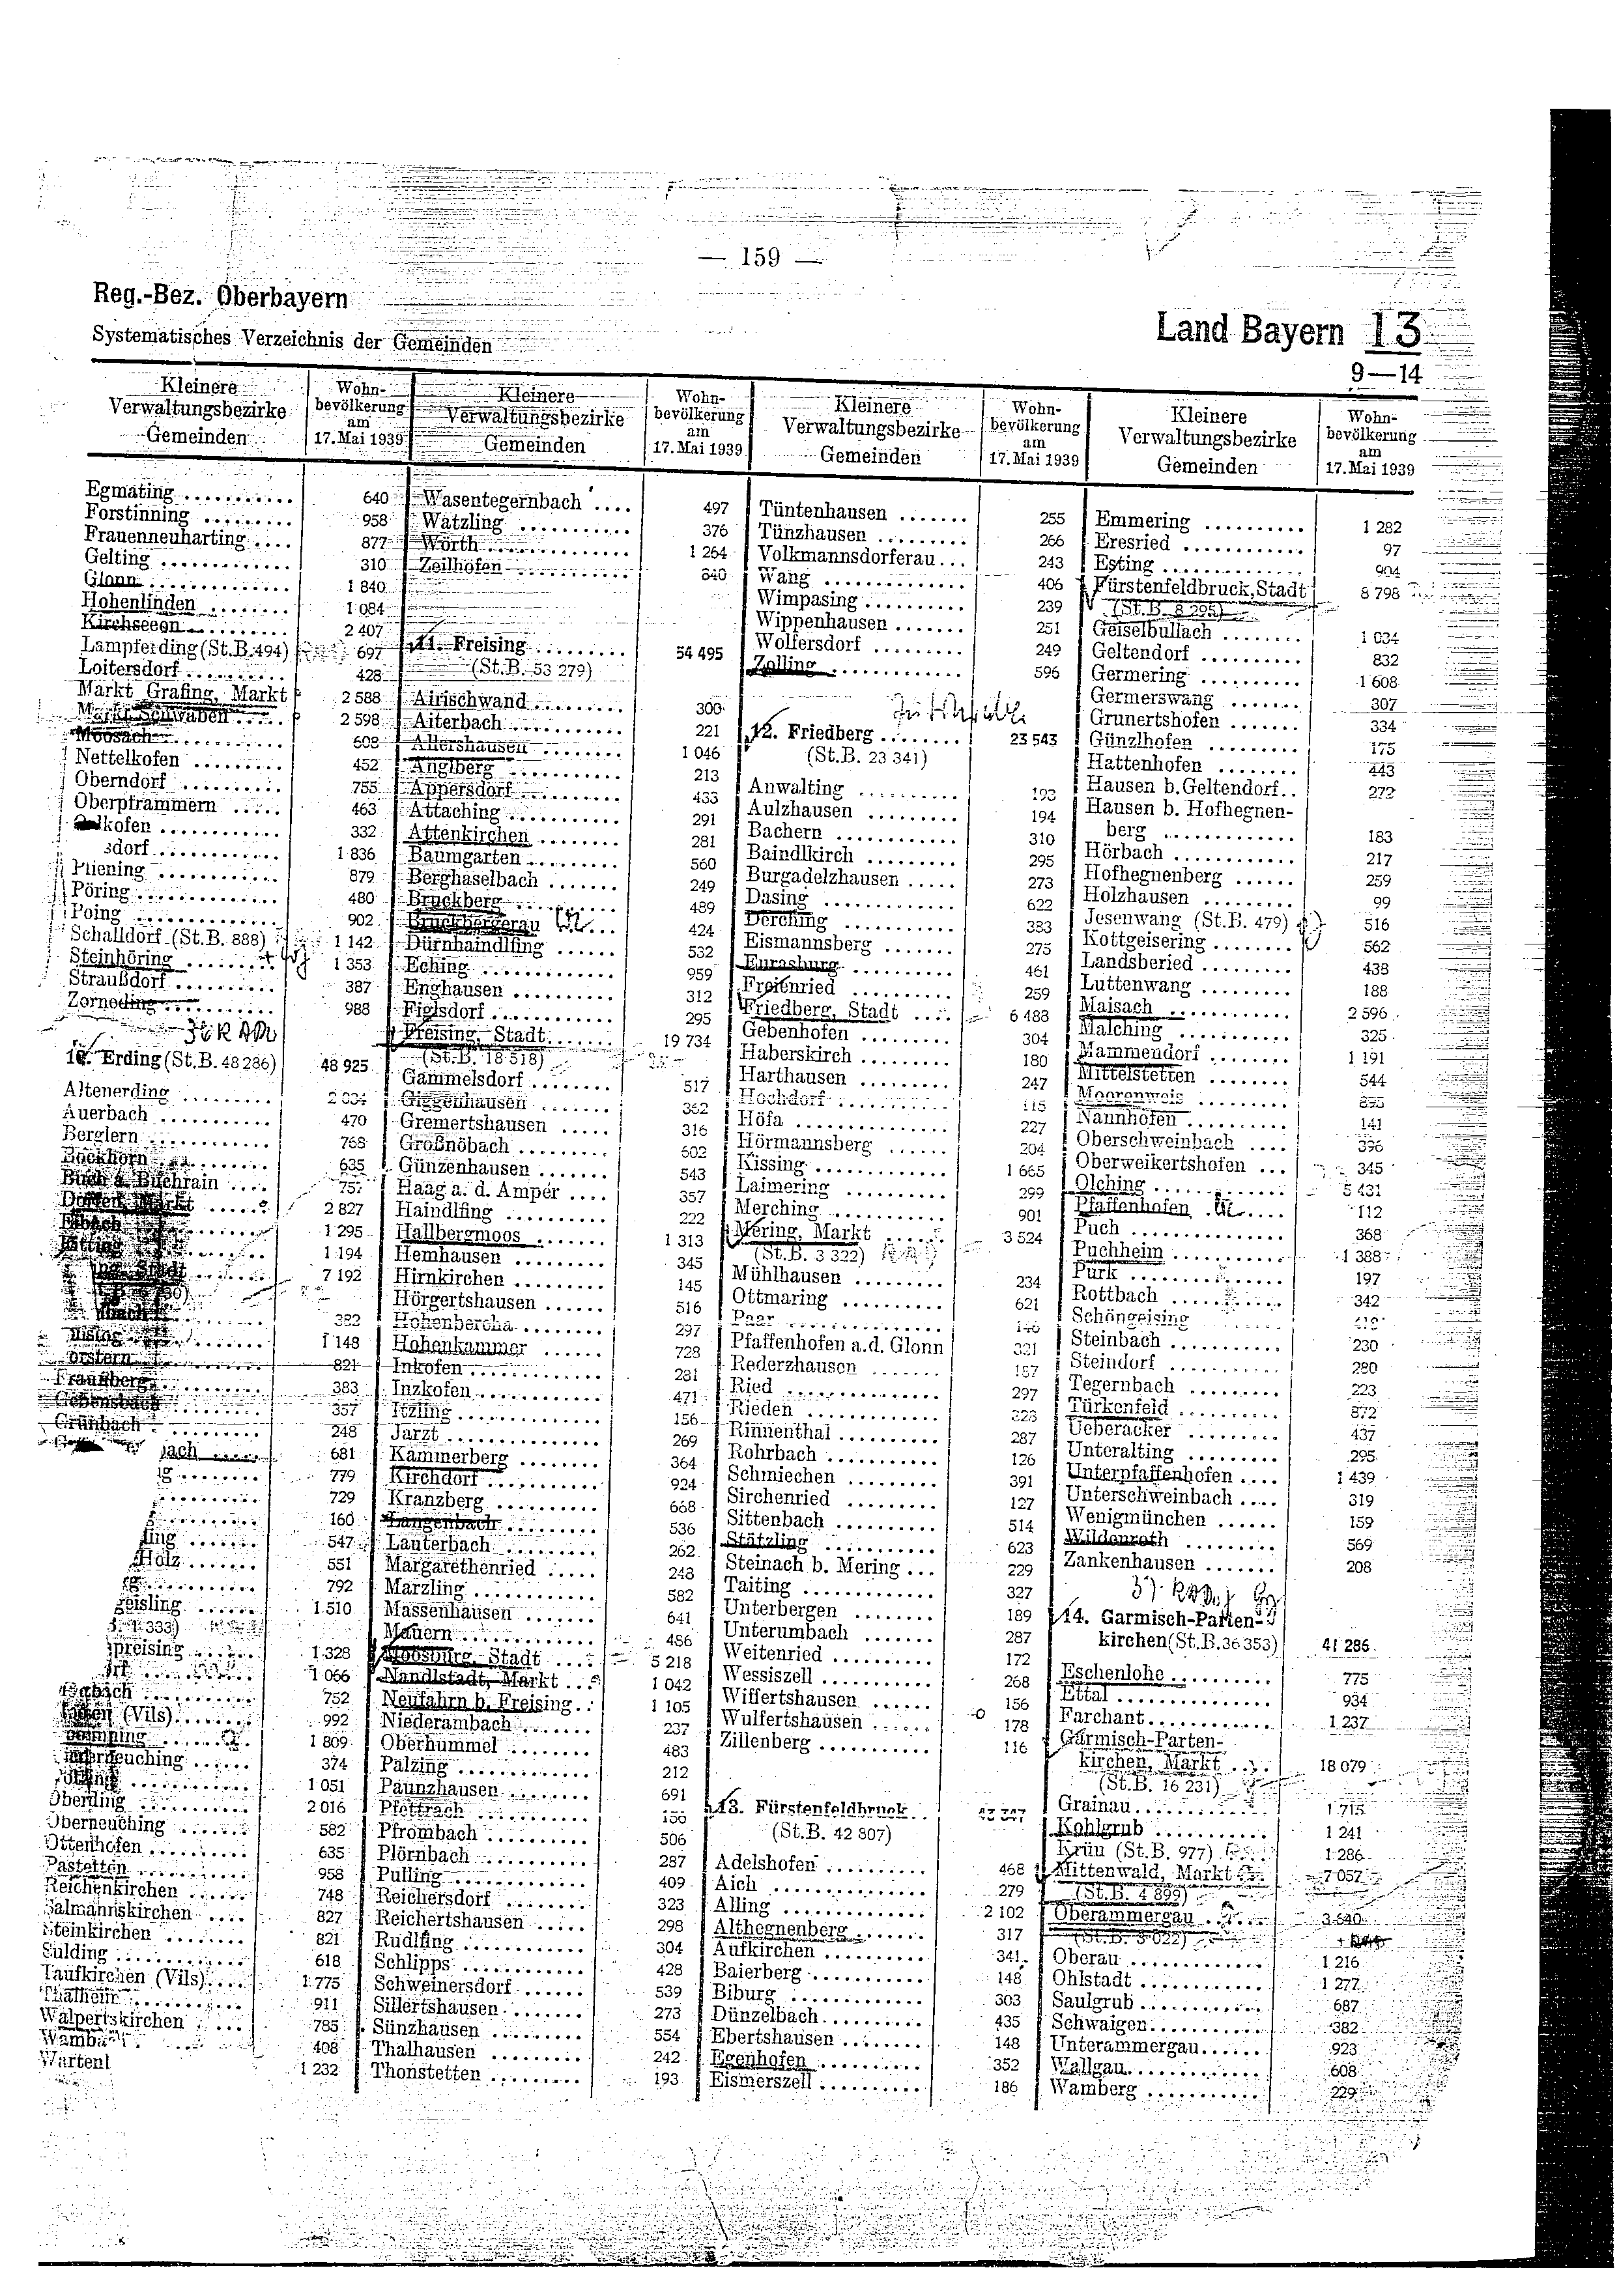 — 159 —
Reg.-Bez. Oberbayern
Systematisches Verzeichnis der Gemeinden
Land Bayern 13
9—14
Kleinere
Verwaltungsbezirke
Gemeinden
Wohn-
bevölkerung
am
17. Mai 1939
Egmating 640
Forstinning 958
Frauenneuharting 877
Gelting 310
Glonn 1 840
Hohenlinden 1 084
Kirchseeon 2 407
Lampferding (St.B. 494) 697
Loitersdorf 428
Markt Grafing, Markt 2 588
Markt Schwaben 2 598
Moosach 603
Nettelkofen 452
Oberndorf 755
Oberpframmern 463
kofen 332
sdorf 1 836
Pliening 879
Pöring 480
Poing 902
Schalldorf (St.B. 888) 1 142
Steinhöring 1 353
Straußdorf 387
Zorneding 988
10. Erding (St.B. 48 286) 48 925
Altenerding
Auerbach 470
Berglern 768
Bockhorn 635
Buch a. Buchrain 757
Dorfen, Markt 2 827
Eibach 1 295
Eitting 1 194
7 192
382
1 148
forstern 821
Fraunberg 383
Gebensbach 357
Grünbach 248
bach 681
779
729
160
547
Holz 551
792
geisling 1 510
preising 1 328
1 066
752
(Vils) 992
1 809
neuching 374
1 051
Oberding 2 016
Oberneuching 582
Ottenhofen 635
Pastetten 958
Reichenkirchen 748
Salmannskirchen 827
Steinkirchen 821
Sulding 618
Taufkirchen (Vils) 1 775
Thalheim 911
Walpertskirchen 785
Wamba 408
Wartenl 1 232
Kleinere
Verwaltungsbezirke
Gemeinden
Wohn-
bevölkerung
am
17. Mai 1939
Wasentegernbach 497
Watzling 376
Wörth 1 264
Zeilhofen 340
11. Freising 54 495
(St.B. 53 279)
Airischwand 300
Aiterbach 221
Allershausen 1 046
Anglberg 213
Appersdorf 433
Attaching 291
Attenkirchen 281
Baumgarten 560
Berghaselbach 249
Bruckberg 489
Bruckbergerau 424
Dürnhaindlfing 532
Eching 959
Enghausen 312
Figlsdorf 295
Freising, Stadt 19 734
(St.B. 18 518)
Gammelsdorf 517
Giggenhausen 362
Gremertshausen 316
Großnöbach 602
Günzenhausen 543
Haag a. d. Amper 357
Haindlfing 222
Hallbergmoos 1 313
Hemhausen 345
Hirnkirchen 145
Hörgertshausen 516
Hohenbercha 297
Hohenkammer 728
Inkofen 281
Inzkofen 471
Itzling 156
Jarzt 269
Kammerberg 364
Kirchdorf 924
Kranzberg 668
Langenbach 536
Lauterbach 262
Margarethenried 243
Marzling 582
Massenhausen 641
Mauern 486
Moosburg, Stadt 5 218
Nandlstadt, Markt 1 042
Neufahrn b. Freising 1 105
Niederambach 237
Oberhummel 483
Palzing 212
Paunzhausen 691
Pfettrach
Pfrombach 506
Plörnbach 287
Pulling 409
Reichersdorf 323
Reichertshausen 298
Rudlfing 304
Schlipps 428
Schweinersdorf 539
Sillertshausen 273
Sünzhausen 554
Thalhausen 242
Thonstetten 193
Kleinere
Verwaltungsbezirke
Gemeinden
Wohn-
bevölkerung
am
17. Mai 1939
Tüntenhausen 255
Tünzhausen 266
Volkmannsdorferau 243
Wang 406
Wimpasing 239
Wippenhausen 251
Wolfersdorf 249
Zolling 596
12. Friedberg 23 543
(St.B. 23 341)
Anwalting 193
Aulzhausen 194
Bachern 310
Baindlkirch 295
Burgadelzhausen 273
Dasing 622
Derching 383
Eismannsberg 275
Eurasburg 461
Freienried 259
Friedberg, Stadt 6 488
Gebenhofen 304
Haberskirch 180
Harthausen 247
Hochdorf 115
Höfa 227
Hörmannsberg 204
Kissing 1 665
Laimering 299
Merching 901
Mering, Markt 3 524
(St.B. 3 322)
Mühlhausen 234
Ottmaring 621
Paar
Pfaffenhofen a.d. Glonn 321
Rederzhausen 187
Ried 297
Rieden 323
Rinnenthal 287
Rohrbach 126
Schmiechen 391
Sirchenried 127
Sittenbach 514
Stätzling 623
Steinach b. Mering 229
Taiting 327
Unterbergen 189
Unterumbach 287
Weitenried 172
Wessiszell 268
Wiffertshausen 156
Wulfertshausen 178
Zillenberg 116
13. Fürstenfeldbruck
(St.B. 42 807)
Adelshofen 468
Aich 279
Alling 2 102
Althegnenberg 317
Aufkirchen 341
Baierberg 148
Biburg 303
Dünzelbach 435
Ebertshausen 148
Egenhofen 352
Eismerszell 186
Kleinere
Verwaltungsbezirke
Gemeinden
Wohn-
bevölkerung
am
17. Mai 1939
Emmering 1 282
Eresried 97
Esting 904
Fürstenfeldbruck, Stadt 8 798
(St.B. 8 295)
Geiselbullach 1 034
Geltendorf 832
Germering 1 608
Germerswang 307
Grunertshofen 334
Günzlhofen 175
Hattenhofen 443
Hausen b. Geltendorf 272
Hausen b. Hofhegnen-
berg 183
Hörbach 217
Hofhegnenberg 259
Holzhausen 99
Jesenwang (St.B. 479) 516
Kottgeisering 562
Landsberied 438
Luttenwang 188
Maisach 2 596
Malching 325
Mammendorf 1 191
Mittelstetten 544
Moorenweis
Nannhofen 141
Oberschweinbach 396
Oberweikertshofen 345
Olching 5 431
Pfaffenhofen 112
Puch 368
Puchheim 1 388
Purk 197
Rottbach 342
Schöngeising
Steinbach 230
Steindorf 280
Tegernbach 223
Türkenfeld 872
Ueberacker 437
Unteralting 295
Unterpfaffenhofen 1 439
Unterschweinbach 319
Wenigmünchen 159
Wildenroth 569
Zankenhausen 208
14. Garmisch-Parten-
kirchen (St.B. 36 353) 41 286
Eschenlohe 775
Ettal 934
Farchant 1 237
Garmisch-Parten-
kirchen, Markt 18 079
(St.B. 16 231)
Grainau 1 715
Kohlgrub 1 241
Krün (St.B. 977) 1 286
Mittenwald, Markt 7 057
(St.B. 4 899)
Oberammergau 3 640
(St.B. 3 022)
Oberau 1 216
Ohlstadt 1 277
Saulgrub 687
Schwaigen 382
Unterammergau 923
Wallgau 608
Wamberg 229